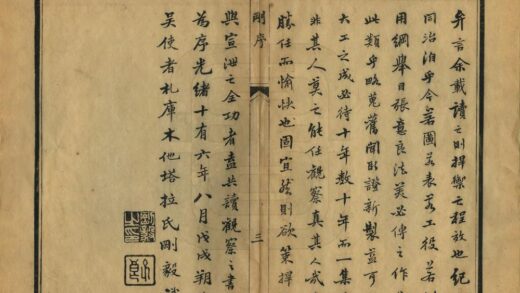 弁言余載讀之則捍禦之程放也紀
同治洎乎今若圖若表若工役若
用綱舉目張意良法美必傳之作
此類乎略蒐舊聞以證新製益可
大工之成必待十年數十年而一集
非其人莫之能任觀察真其人哉
勝任而愉快也固宜然則欲策捍
剛序
三
與宣泄之全功者盍共讀觀察之書
為序光緒十有六年八月戊戌朔
吳使者札庫木他塔拉氏剛毅
剛毅之印